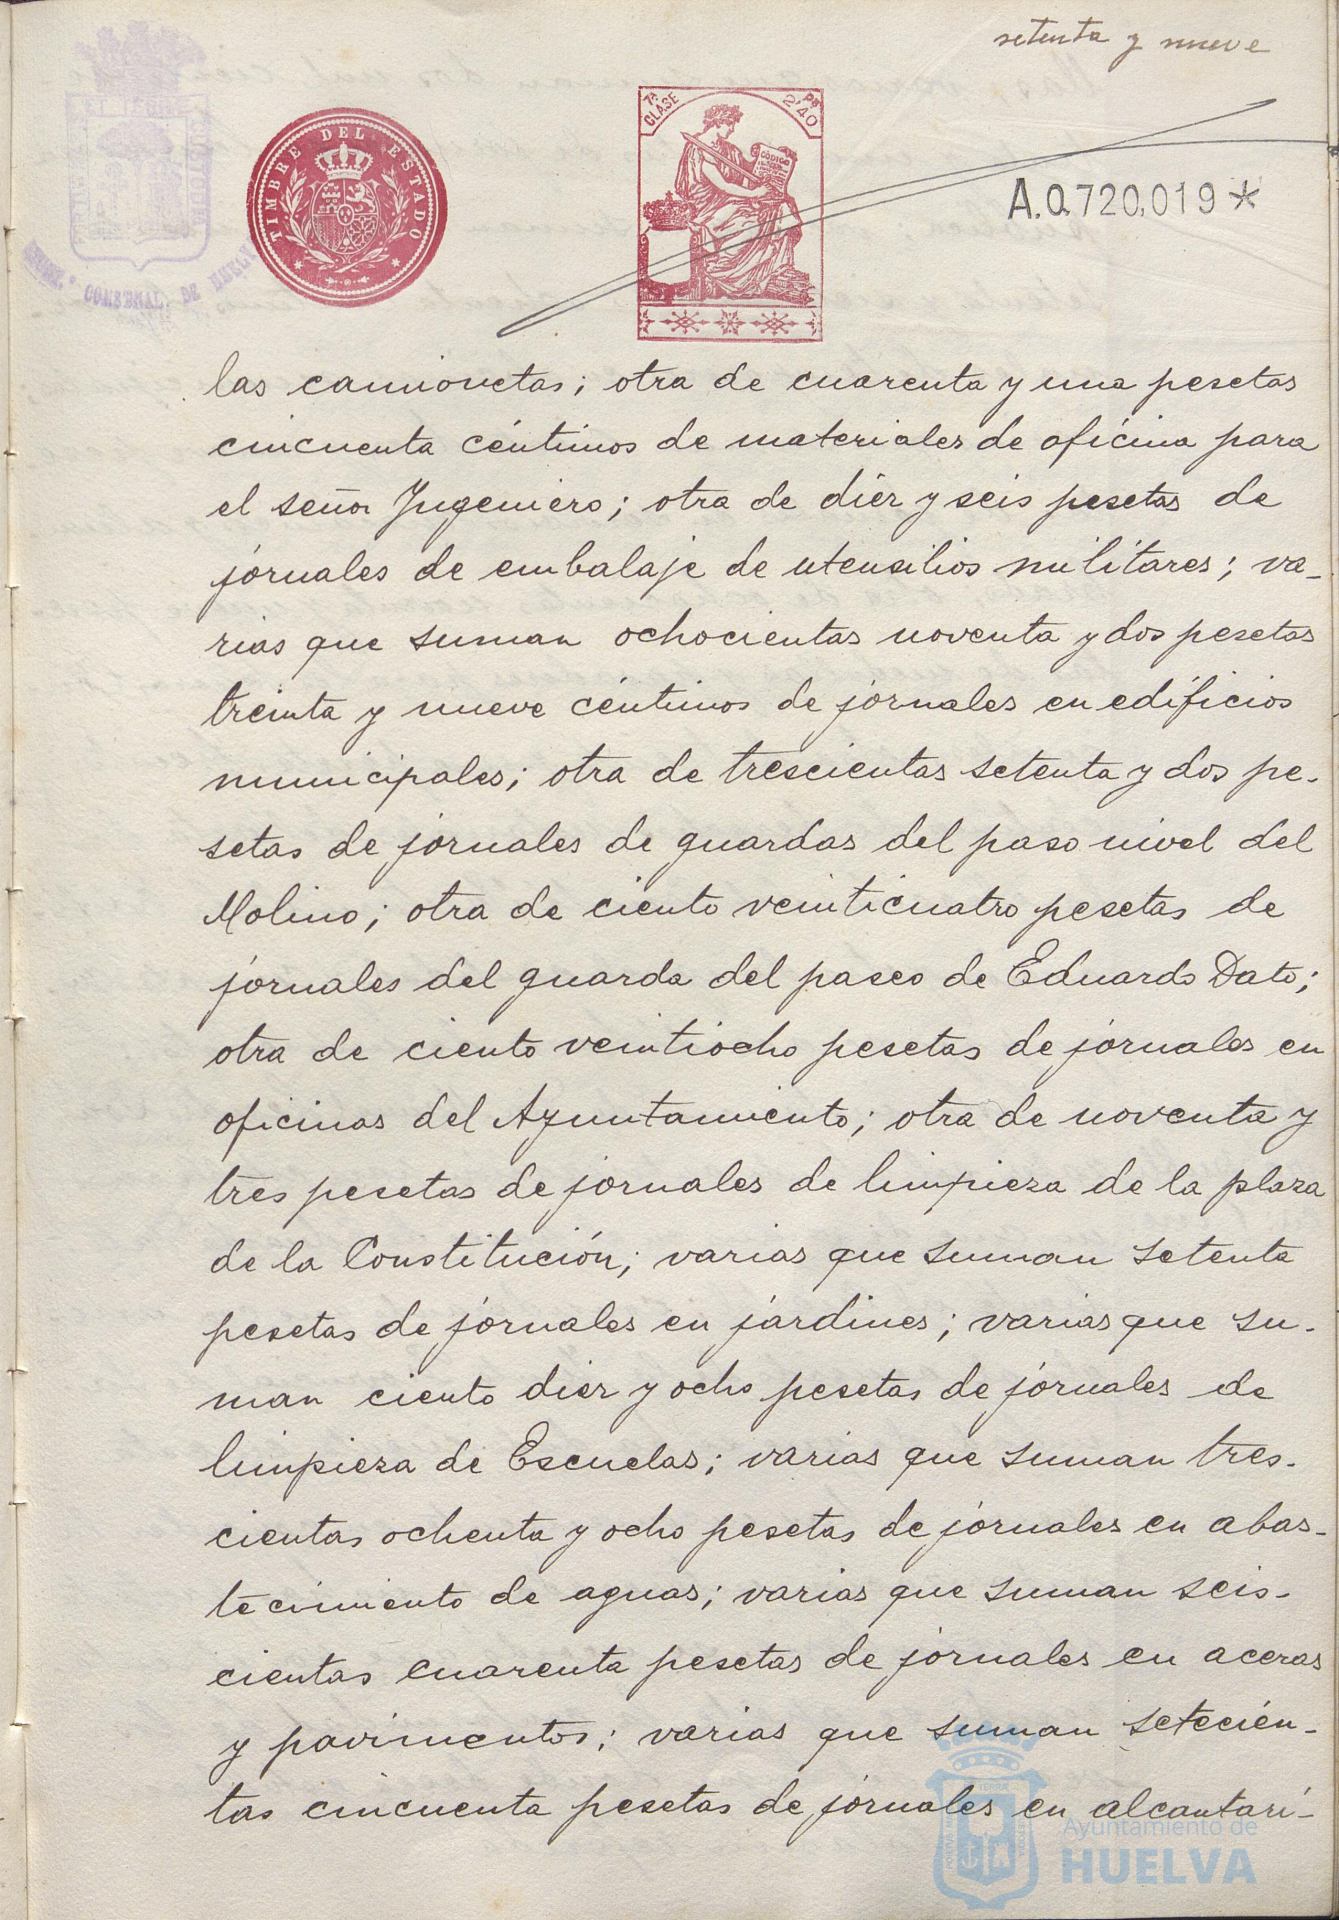 setenta y nueve
TIMBRE DEL ESTADO
7ª CLASE
Ps 2'40
CODIGO
A.0.720,019*
CONSERVAL. DE HUELVA
las camionetas; otra de cuarenta y una pesetas
cincuenta céntimos de materiales de oficina para
el señor Ingeniero; otra de diez y seis pesetas de
jornales de embalaje de utensilios militares; va-
rias que suman ochocientas noventa y dos pesetas
treinta y nueve céntimos de jornales en edificios
municipales; otra de trescientas setenta y dos pe-
setas de jornales de guardas del paso nivel del
Molino; otra de ciento veinticuatro pesetas de
jornales del guarda del paseo de Eduardo Dato;
otra de ciento veintiocho pesetas de jornales en
oficinas del Ayuntamiento; otra de noventa y
tres pesetas de jornales de limpieza de la plaza
de la Constitución; varias que suman setenta
pesetas de jornales en jardines; varias que su-
man ciento diez y ocho pesetas de jornales de
limpieza de Escuelas; varias que suman tres-
cientas ochenta y ocho pesetas de jornales en abas-
tecimiento de aguas; varias que suman seis-
cientas cuarenta pesetas de jornales en aceras
y pavimentos; varias que suman setecien-
tas cincuenta pesetas de jornales en alcantari-
Ayuntamiento de
HUELVA